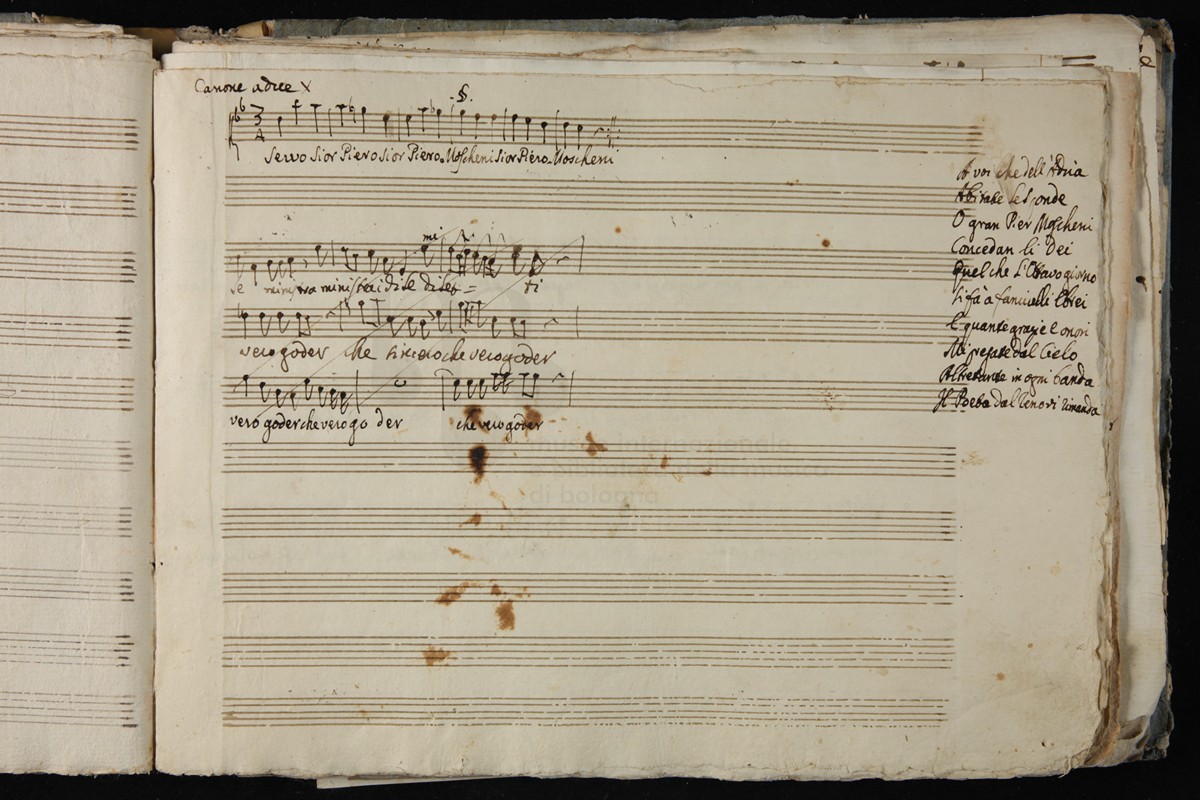 Canone a dree X
Servo Sior Piero Sior Piero Moscheni Sior Piero Moscheni
mi
ministrai di le dilet = ti
vero goder che sincero che vero goder
vero goder che vero go der che vero goder
A voi che dell'Adria
Abitate le sponde
O gran Pier Moscheni
Concedan li Dei
Quel che l'Ottavo giorno
Si fà a fanciulli Ebrei
E quante grazie e onori
Mi pregate dal Cielo
Altretante in ogni banda
Il Poeta dal Cenovi rimanda
museo internazionale
e biblioteca della musica
di bologna